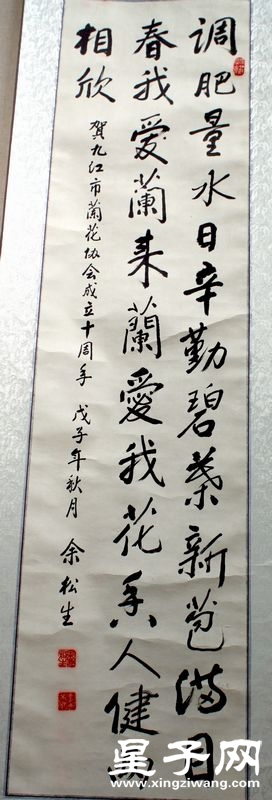 调肥量水日辛勤碧葉新苞满目
春我愛蘭来蘭愛我花香人健两
相欣
賀九江市蘭花协会成立十周年 戊子年秋月 余松生
星子网
www.xingziwang.com